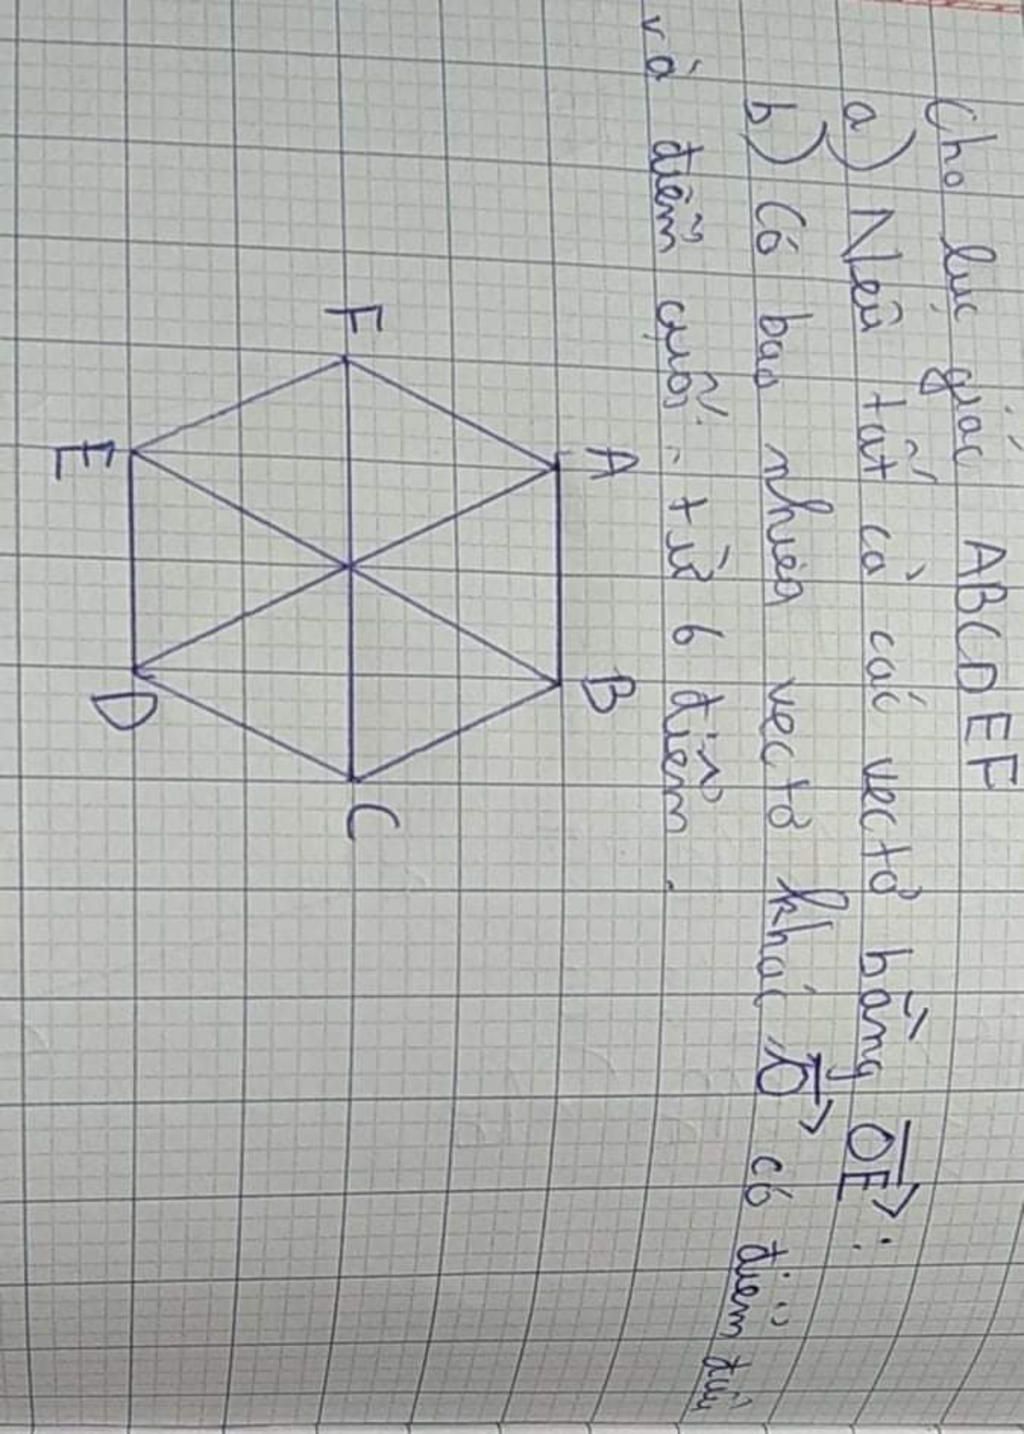 Cho lục giác ABCDEF
a) Nêu tất cả các vectơ bằng OE :
b) Có bao nhiêu vectơ khác O có điểm đầu
và điểm cuối từ 6 điểm.
A
B
F
C
E
D